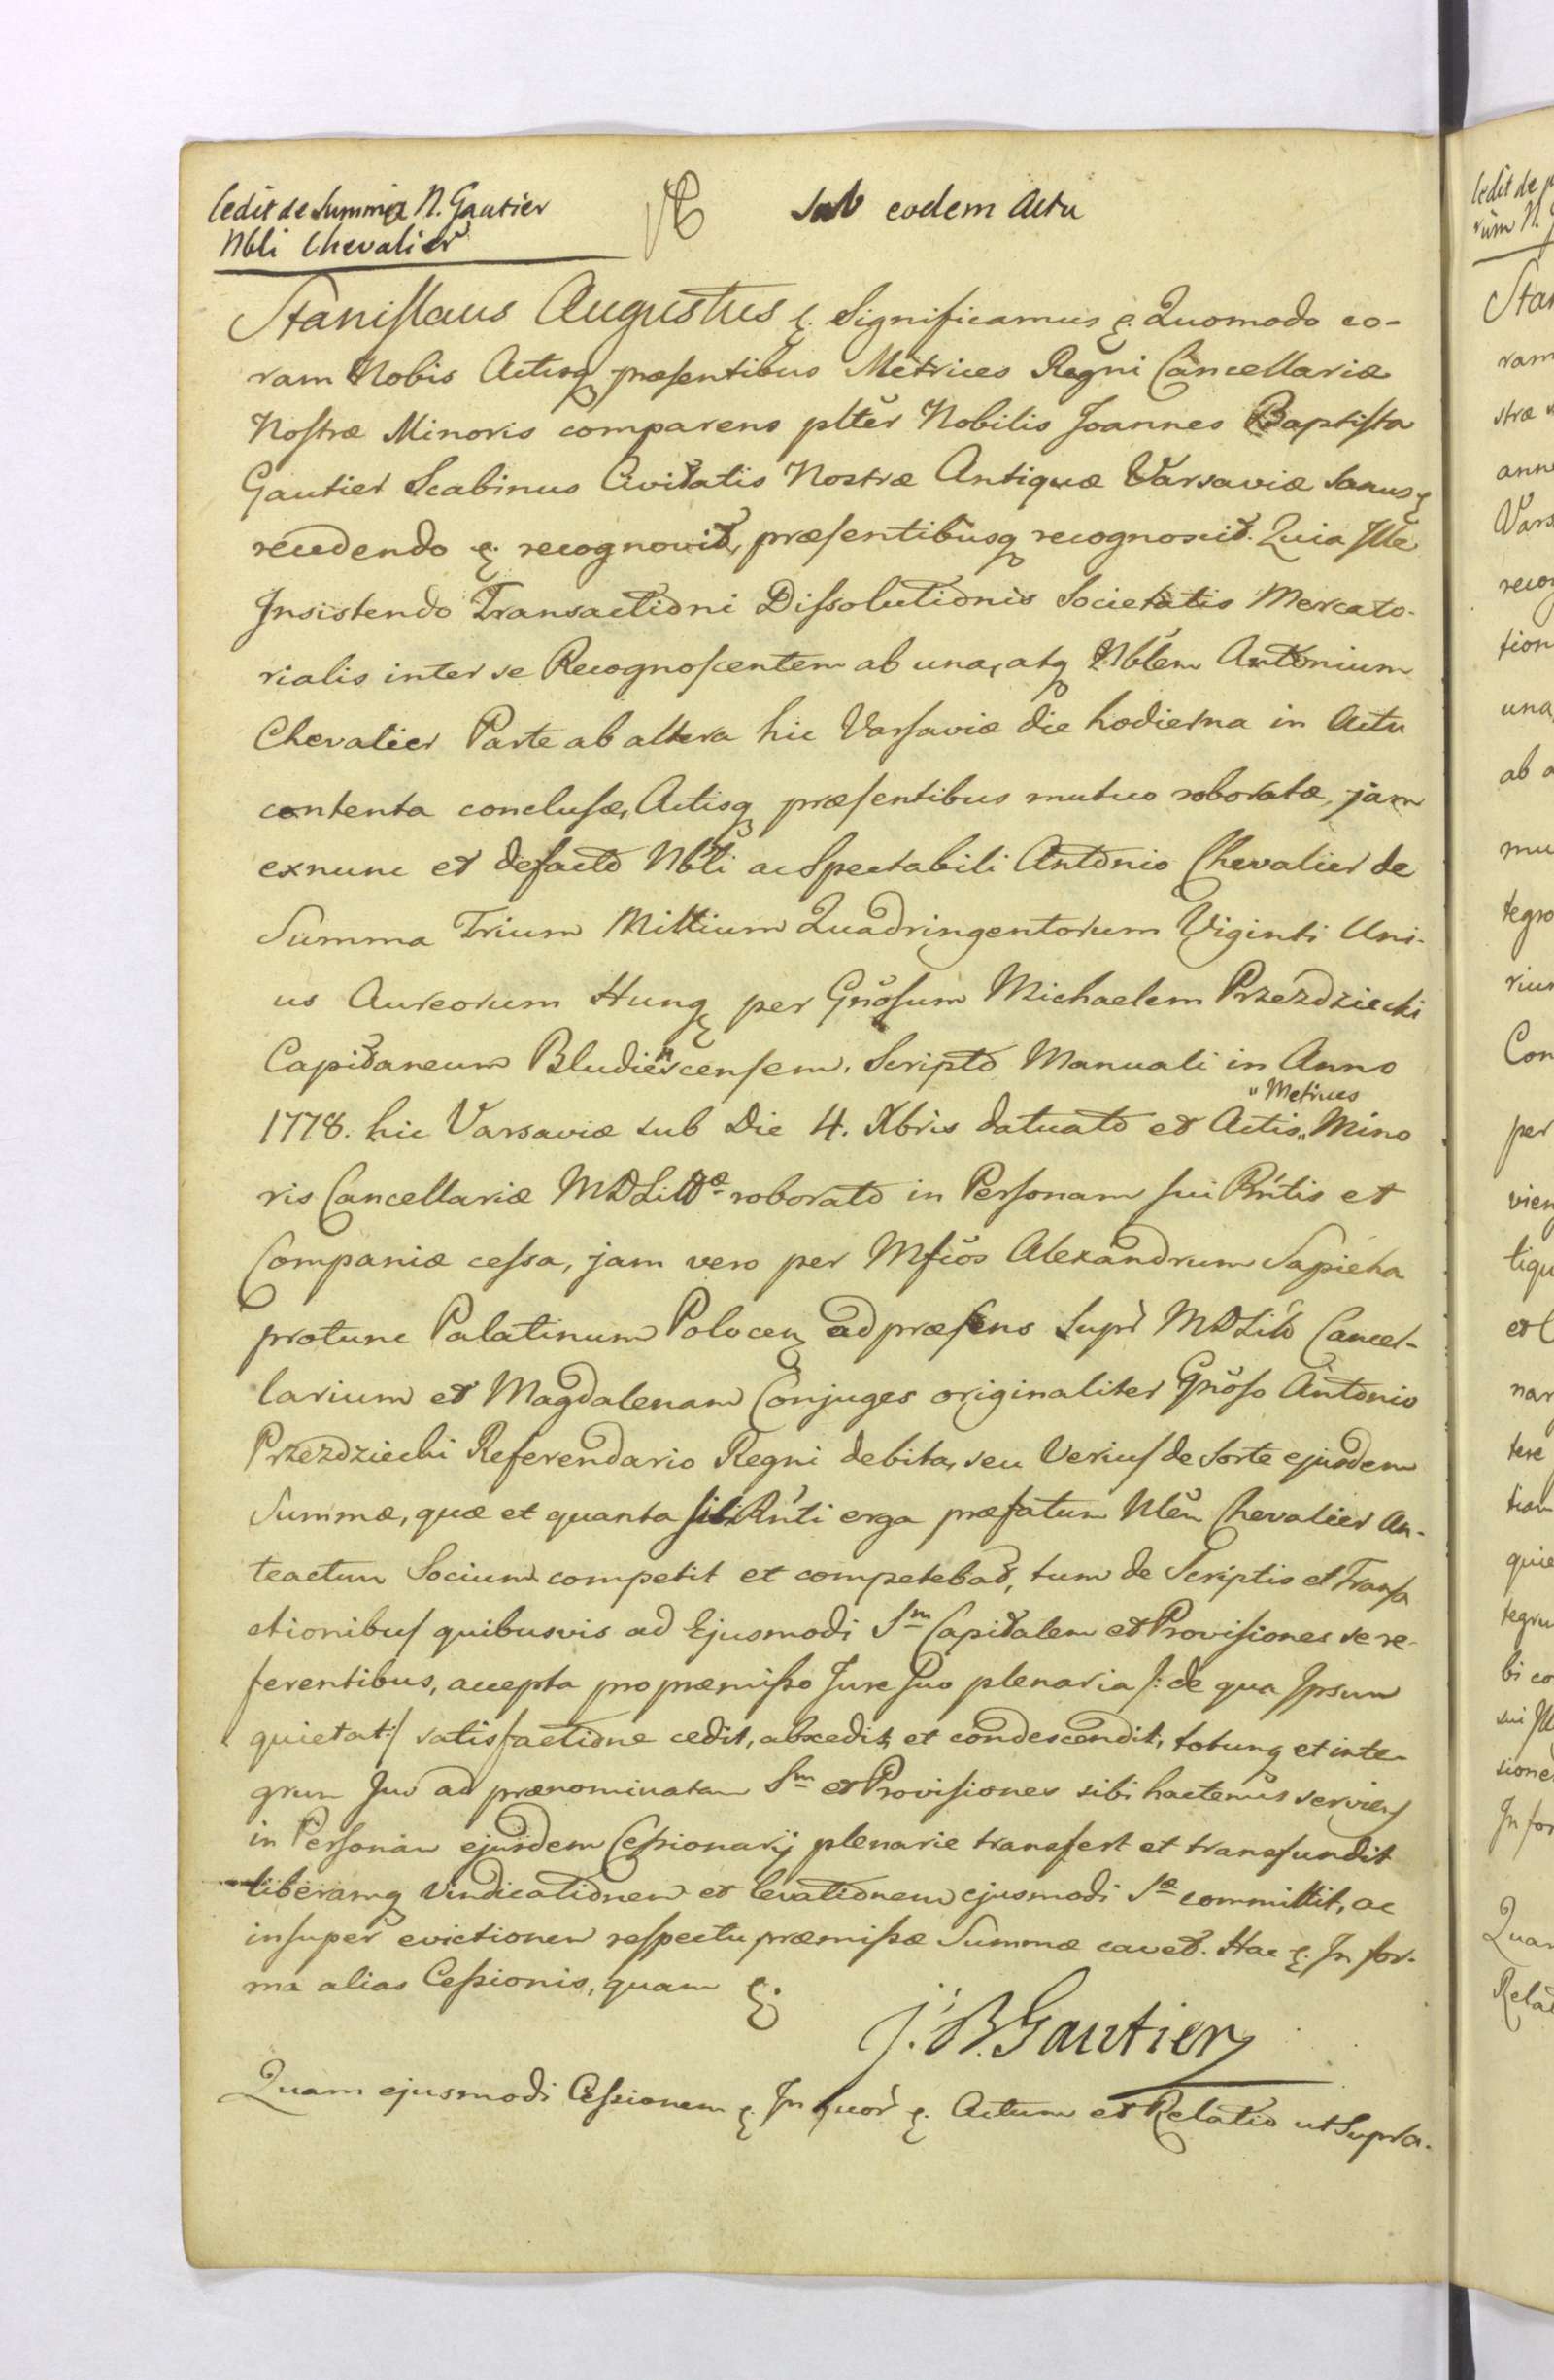 Cedit de Summa N. Gautier
Nbli Chevalier
Sub eodem Actu
Stanislaus Augustus &. Significamus &. Quomodo co-
ram Nobis Actisq præsentibus Metrices Regni Cancellariæ
Nostræ Minoris comparens plter Nobilis Joannes Baptista
Gautier Scabinus Civitatis Nostræ Antiquæ Varsaviæ Sanus &
recedendo &. recognovit, præsentibusq recognoscit. Quia Ille
Insistendo Transactioni Dissolutionis Societatis Mercato-
rialis inter se Recognoscentem ab una, atq Nblem Antonium
Chevalier Parte ab altera hic Varsaviæ die hodierna in Actu
contenta conclusæ, Actisq præsentibus mutuo roboratæ, jam
exnunc et defacto Nbli ac Spectabili Antonio Chevalier de
Summa Trium Millium Quadringentorum Viginti Uni-
us Aureorum Hung per Gnosum Michaelem Przezdziecki
Capitaneum Bludinscensem. Scripto Manuali in Anno
"Metrices
1778. hic Varsaviæ sub Die 4. Xbris datuato et Actis " Mino
ris Cancellariæ MDLittæ roborato in Personam sui Rntis et
Companiæ cessa, jam vero per Mficos Alexandrum Sapieha
protunc Palatinum Polocen ad præsens Supr MDLitt Cancel-
larium et Magdalenam Conjuges originaliter Gnoso Antonio
Przezdziecki Referendario Regni debita, seu Verius de Sorte ejusdem
Summæ, quæ et quanta sibi Rnti erga præfatum Nlem Chevalier An-
teactum Socium competit et competebat, tum de Scriptis et Transa
ctionibus quibusvis ad Ejusmodi Sm Capitalem et Provisiones se re-
ferentibus, accepta pro præmisso Jure Suo plenaria /: de qua Ipsum
quietat :/ satisfactione cedit, abscedit et condescendit, totumq et inte-
grum Jus ad prænominatam Sm et Provisiones sibi hactenus serviens
in Personam ejusdem Cessionarij plenarie transfert et transfundit
liberamq Vindicationem et levationem ejusmodi Sæ committit, ac
insuper evictionem respectu præmissæ Summæ cavet. Hac &. In for-
ma alias Cessionis, quam &.
J. B. Gautier
Quam ejusmodi Cessionem &. In quor &. Actum et Relatio ut Supra.